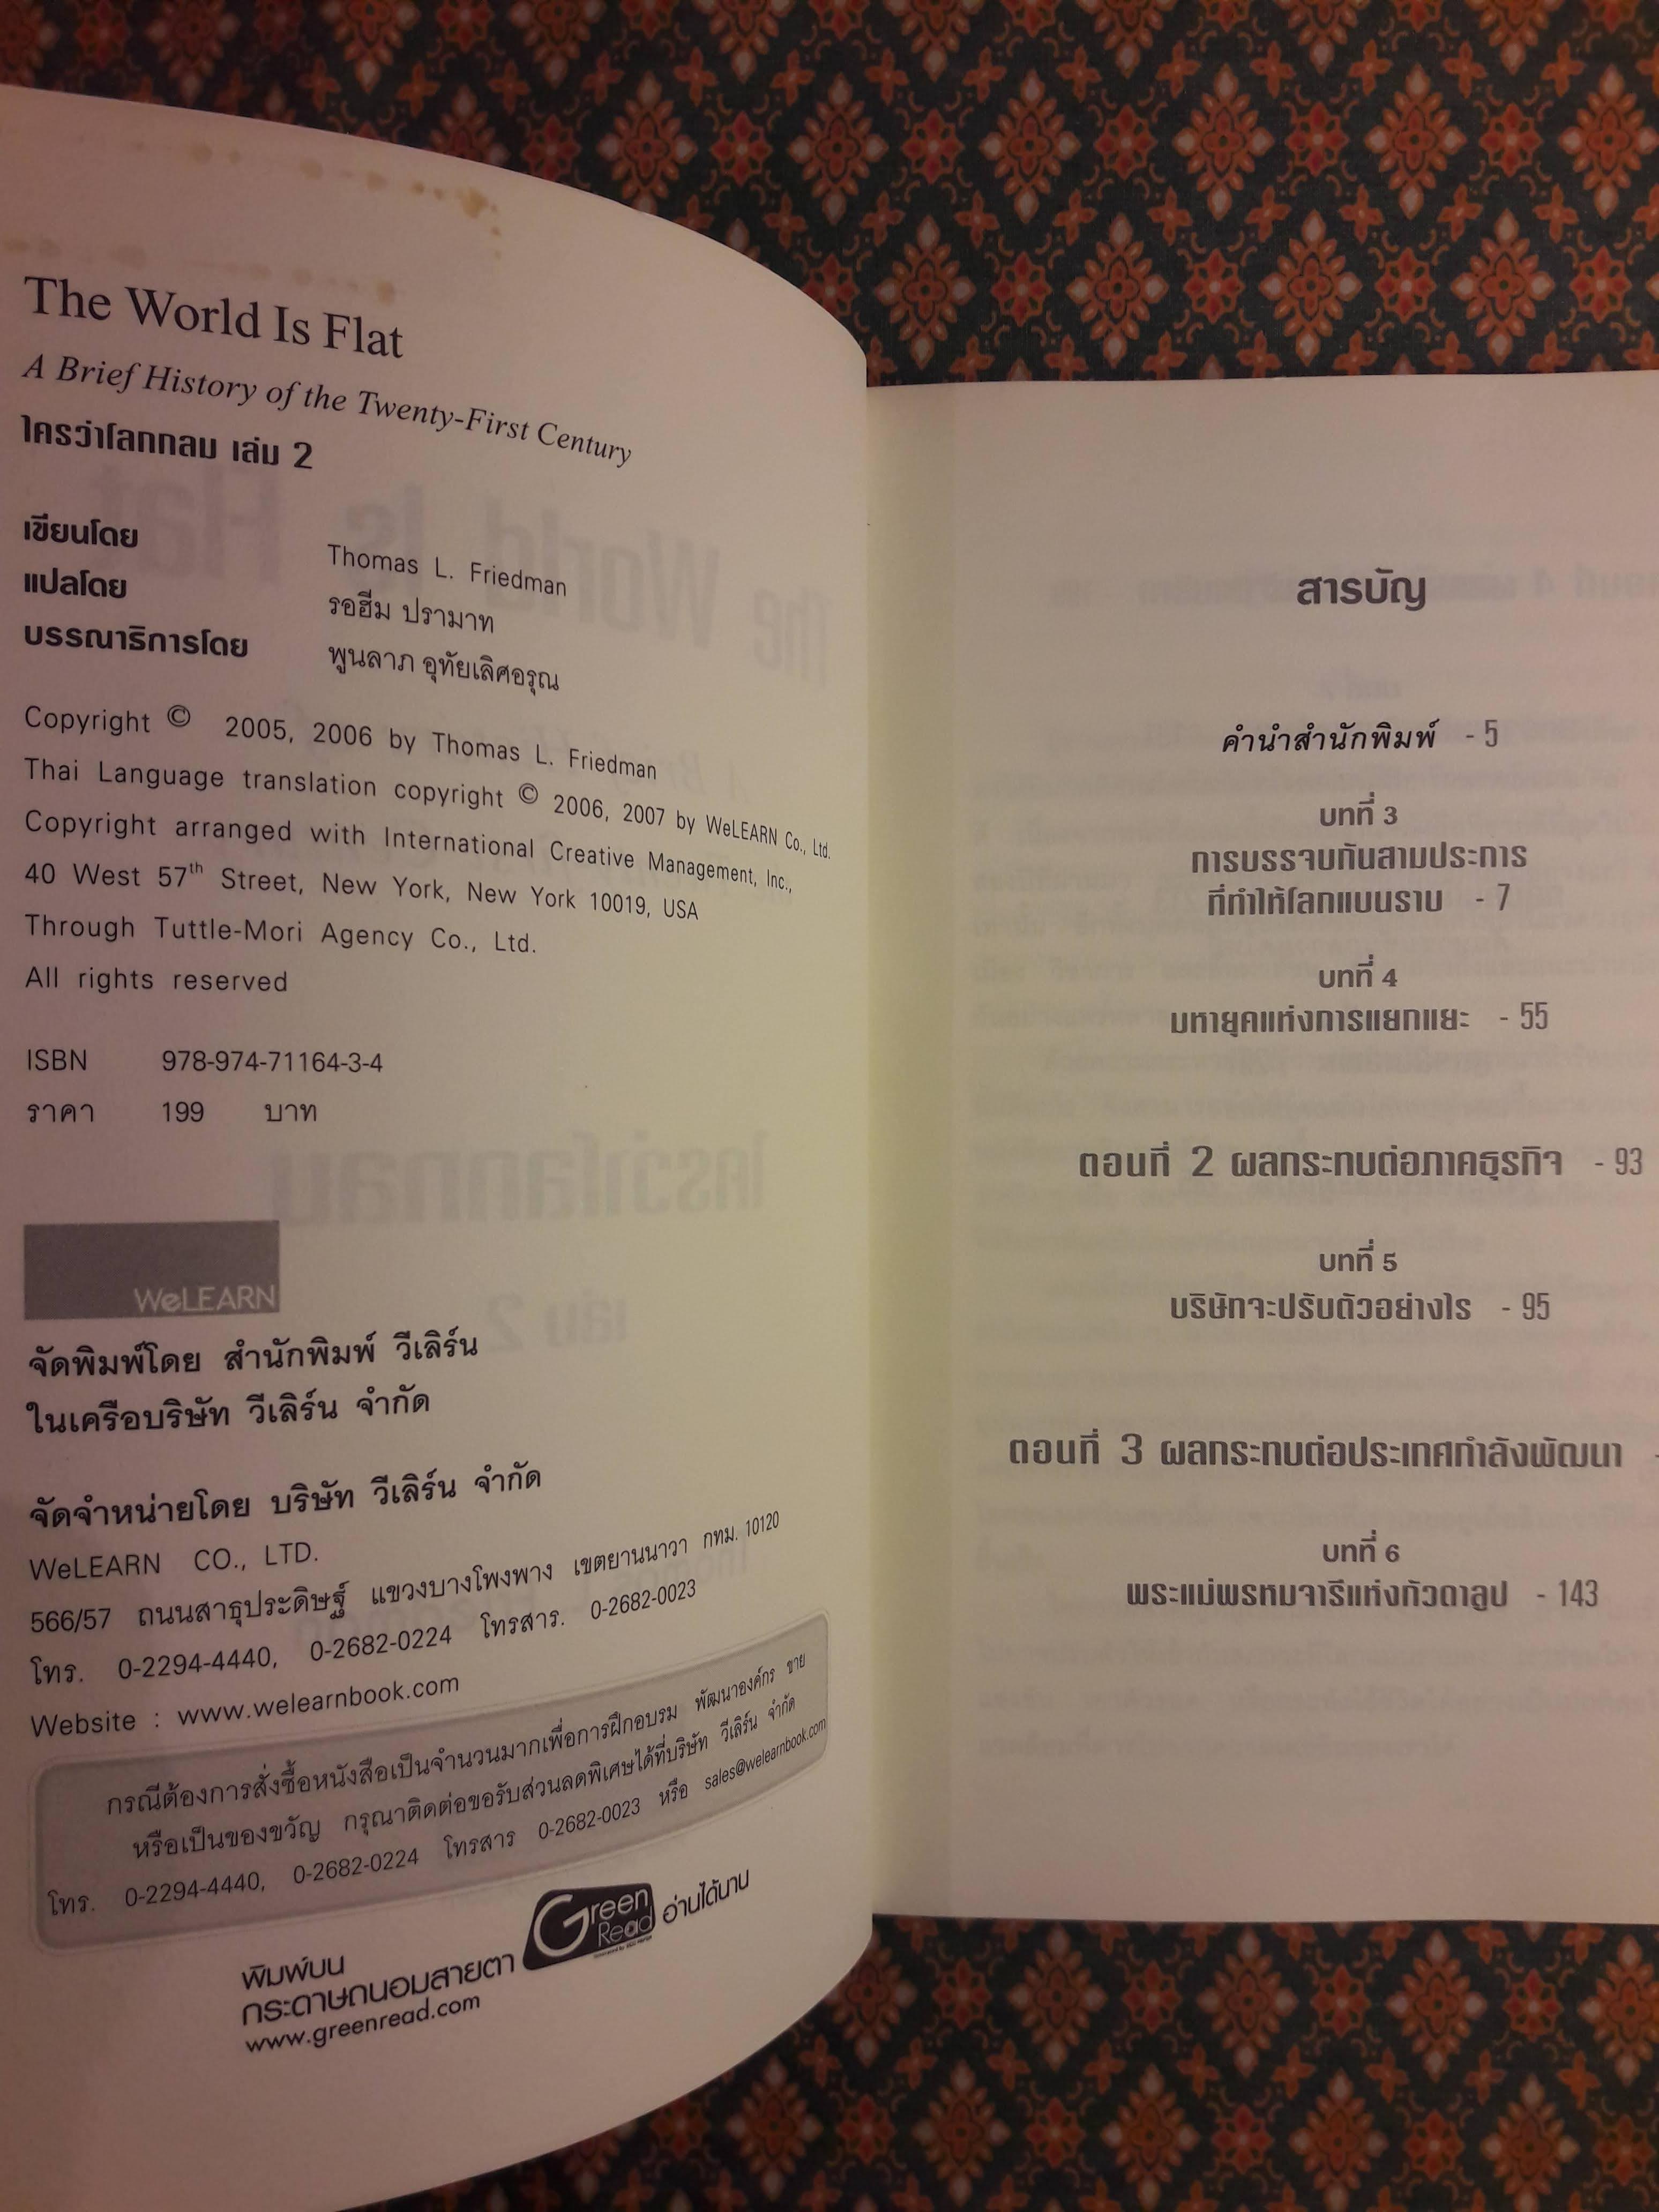 The World Is Flat
A Brief History of the Twenty-First Century
ใครว่าโลกกลม เล่ม 2
เขียนโดย Thomas L. Friedman
แปลโดย รอฮีม ปรามาท
บรรณาธิการโดย พูนลาภ อุทัยเลิศอรุณ
Copyright © 2005, 2006 by Thomas L. Friedman
Thai Language translation copyright © 2006, 2007 by WeLEARN Co., Ltd.
Copyright arranged with International Creative Management, Inc.,
40 West 57th Street, New York, New York 10019, USA
Through Tuttle-Mori Agency Co., Ltd.
All rights reserved
ISBN 978-974-71164-3-4
ราคา 199 บาท
WeLEARN
จัดพิมพ์โดย สำนักพิมพ์ วีเลิร์น
ในเครือบริษัท วีเลิร์น จำกัด
จัดจำหน่ายโดย บริษัท วีเลิร์น จำกัด
WeLEARN CO., LTD.
566/57 ถนนสาธุประดิษฐ์ แขวงบางโพงพาง เขตยานนาวา กทม. 10120
โทร. 0-2294-4440, 0-2682-0224 โทรสาร. 0-2682-0023
Website : www.welearnbook.com
กรณีต้องการสั่งซื้อหนังสือเป็นจำนวนมากเพื่อการฝึกอบรม พัฒนาองค์กร ขาย
หรือเป็นของขวัญ กรุณาติดต่อขอรับส่วนลดพิเศษได้ที่บริษัท วีเลิร์น จำกัด
โทร. 0-2294-4440, 0-2682-0224 โทรสาร 0-2682-0023 หรือ sales@welearnbook.com
พิมพ์บน
กระดาษถนอมสายตา Green Read อ่านได้นาน
www.greenread.com
สารบัญ
คำนำสำนักพิมพ์ - 5
บทที่ 3
การบรรจบกันสามประการ
ที่ทำให้โลกแบนราบ - 7
บทที่ 4
มหายุคแห่งการแยกแยะ - 55
ตอนที่ 2 ผลกระทบต่อภาคธุรกิจ - 93
บทที่ 5
บริษัทจะปรับตัวอย่างไร - 95
ตอนที่ 3 ผลกระทบต่อประเทศกำลังพัฒนา -
บทที่ 6
พระแม่พรหมจารีแห่งกัวดาลูป - 143